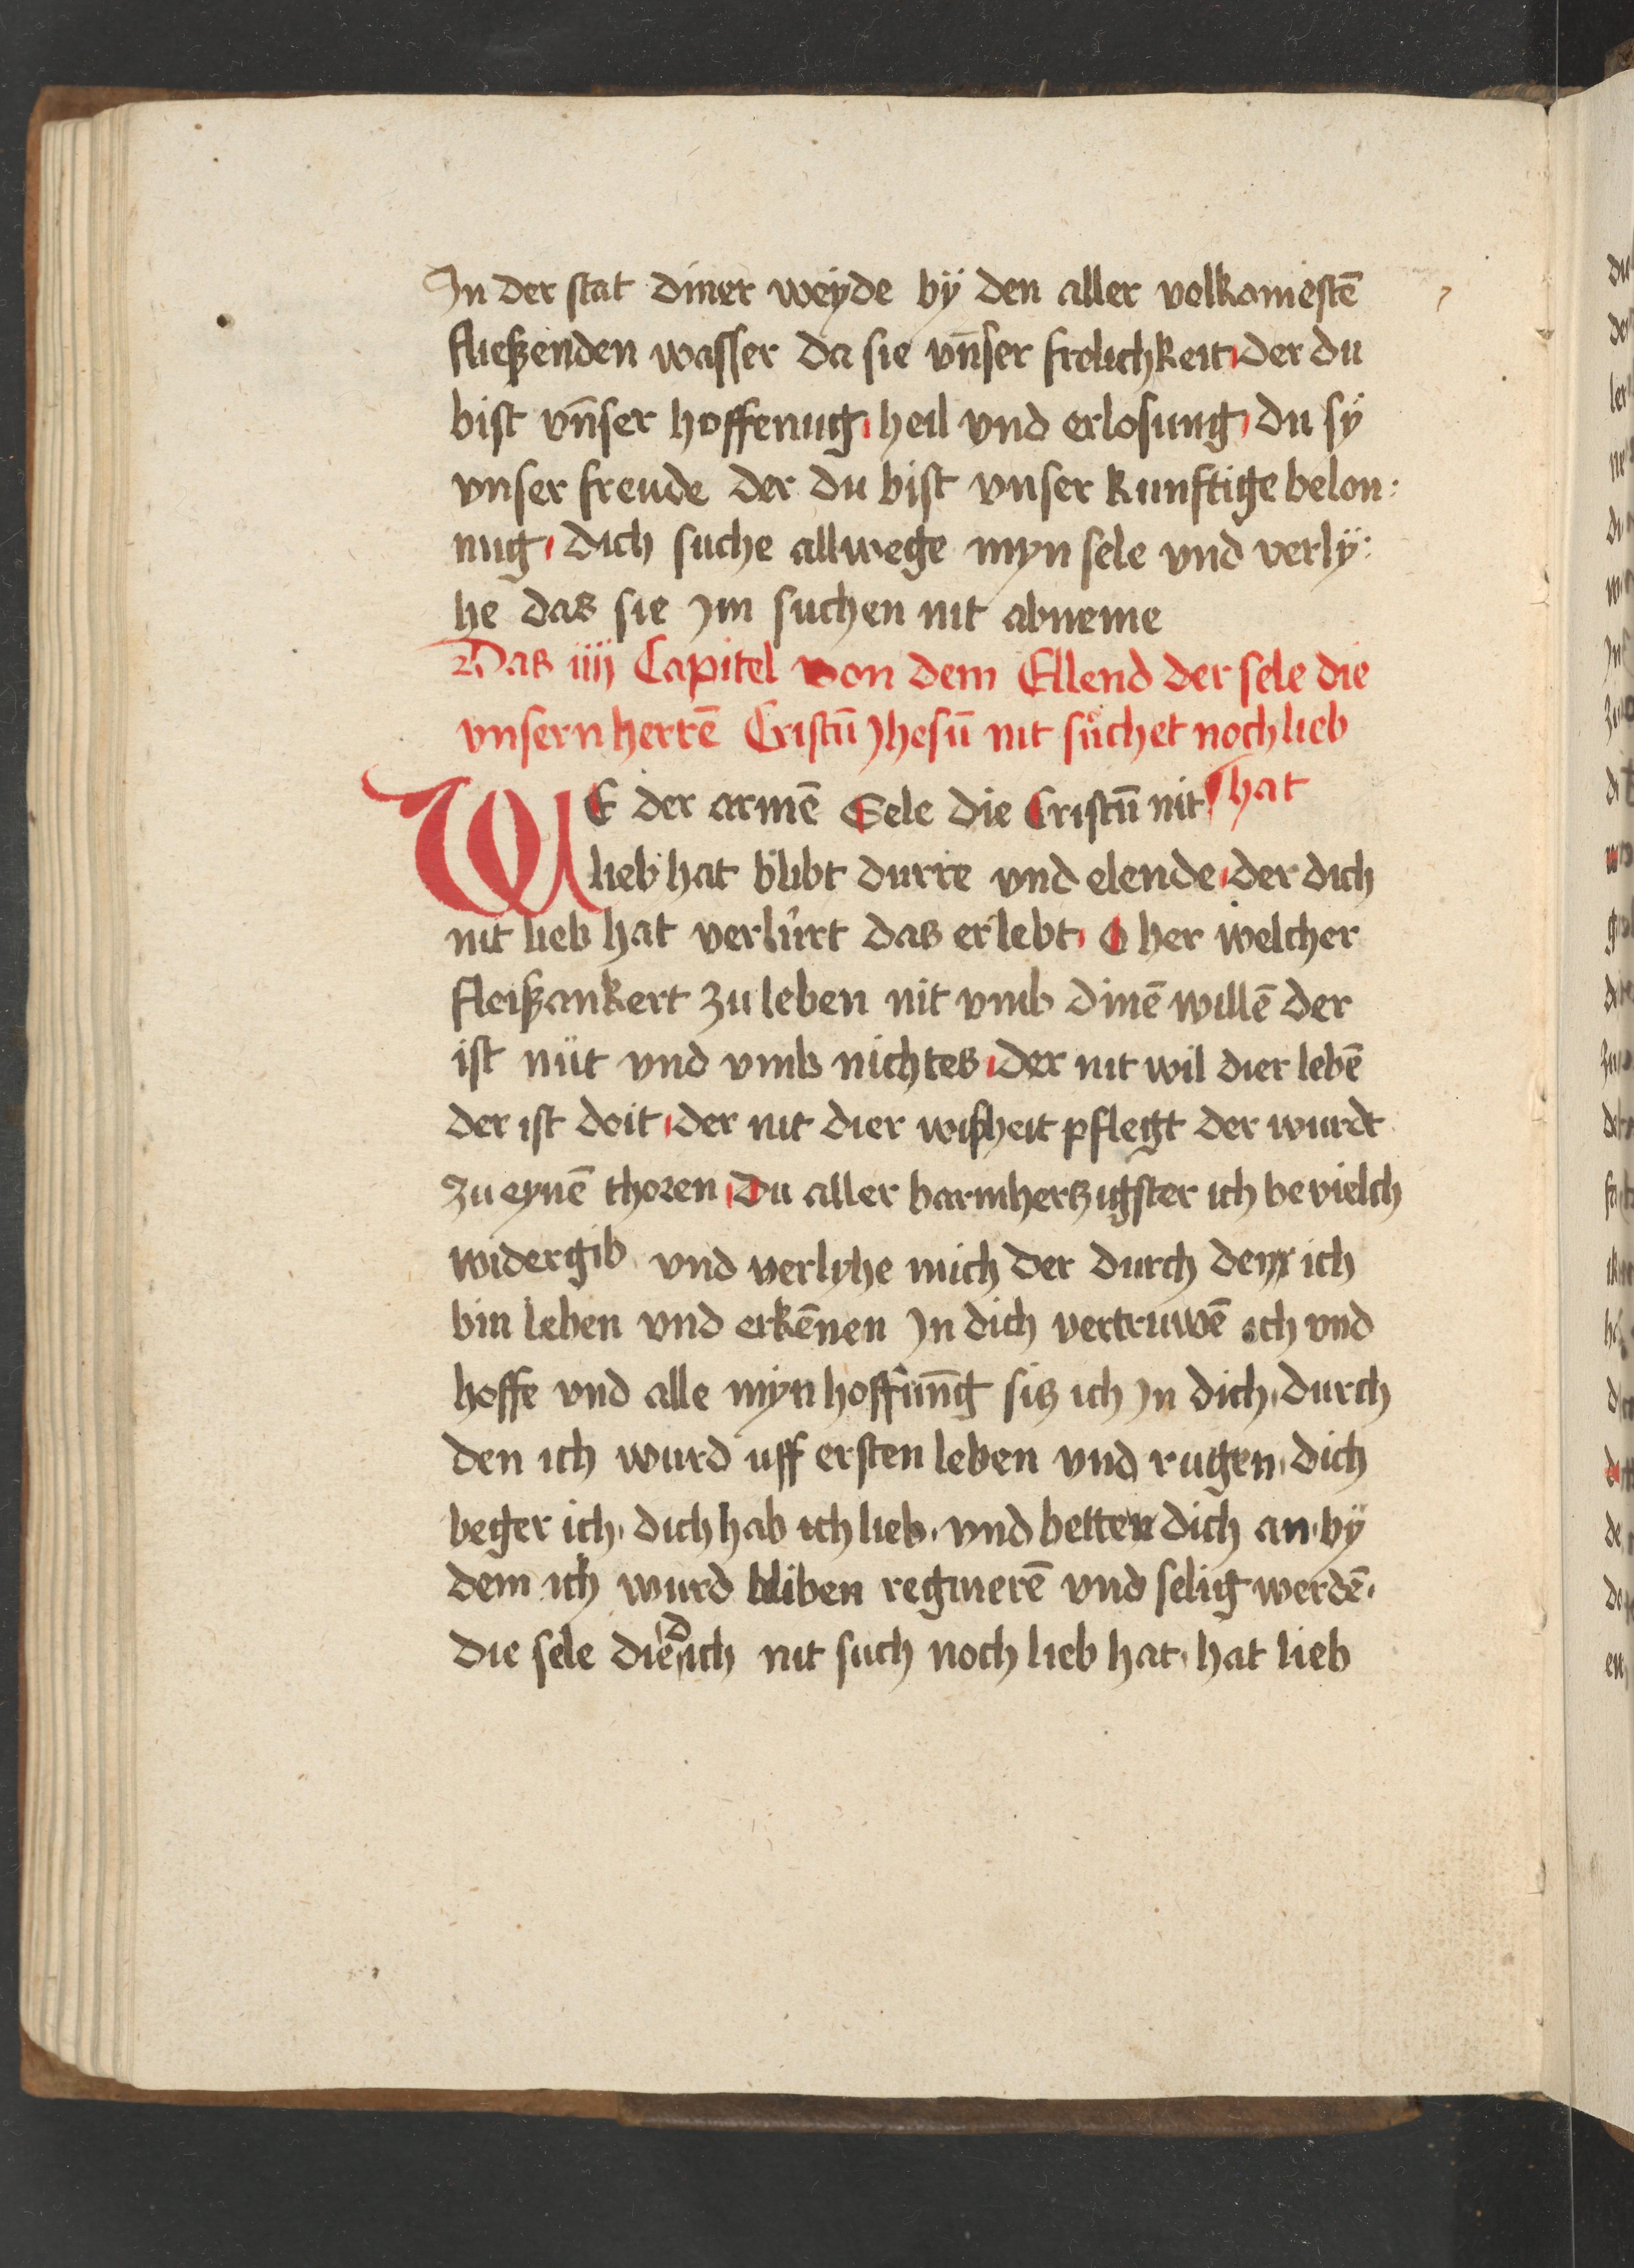 Jn der stat diner weyde bÿ den aller volkomestē
fließenden wasser da sie vn̄ser frolichkeit der du
bist vn̄ser hoffenug heil vnd erlosung du sÿ
vnser freude der du bist vnser kunftige belon:
nug dich suche allwege myn sele vnd verlÿ:
he das sie Jm suchen nit abneme
Das iiij Capitel von dem Ellend der sele die
vnsern herrē Cristū Jhesū nit sůchet noch lieb
hat
WE der armē Sele die Cristū nit
lieb hat blibt durre vnd elende der dich
nit lieb hat verlurt das er lebt O her welcher
fleißankert zu leben nit vmb dinē willē der
ist nüt vnd vmb nichtes der nit wil dier lebē
der ist doit der nit dier wißheit pflegt der wurdt
zu eynē thoren Du aller barmhertzigster ich bevielch
widergib vnd verlyhe mich der durch den ich
bin leben vnd erkēnen Jn dich vertruwē ich vnd
hoffe vnd alle mÿn hoffūng sitz ich Jn dich durch
den ich wurd uff ersten leben vnd rugen dich
beger ich dich hab ich lieb vnd betten dich an bÿ
dem ich wurd bliben regnierē vnd selig werdē
die sele die dich nit such noch lieb hat hat lieb